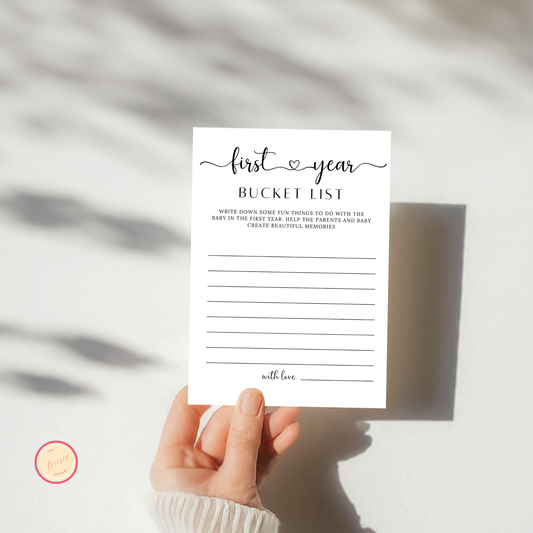 first year
BUCKET LIST
WRITE DOWN SOME FUN THINGS TO DO WITH THE
BABY IN THE FIRST YEAR. HELP THE PARENTS AND BABY
CREATE BEAUTIFUL MEMORIES
with love,